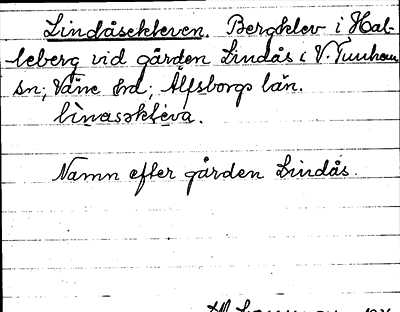 Lindåsekleven. Bergklev i Hal-
leberg vid gården Lindås i V. Tunhem
sn; Väne hd; Älfsborgs län.
lìnasəklèva.
Namn efter gården Lindås.